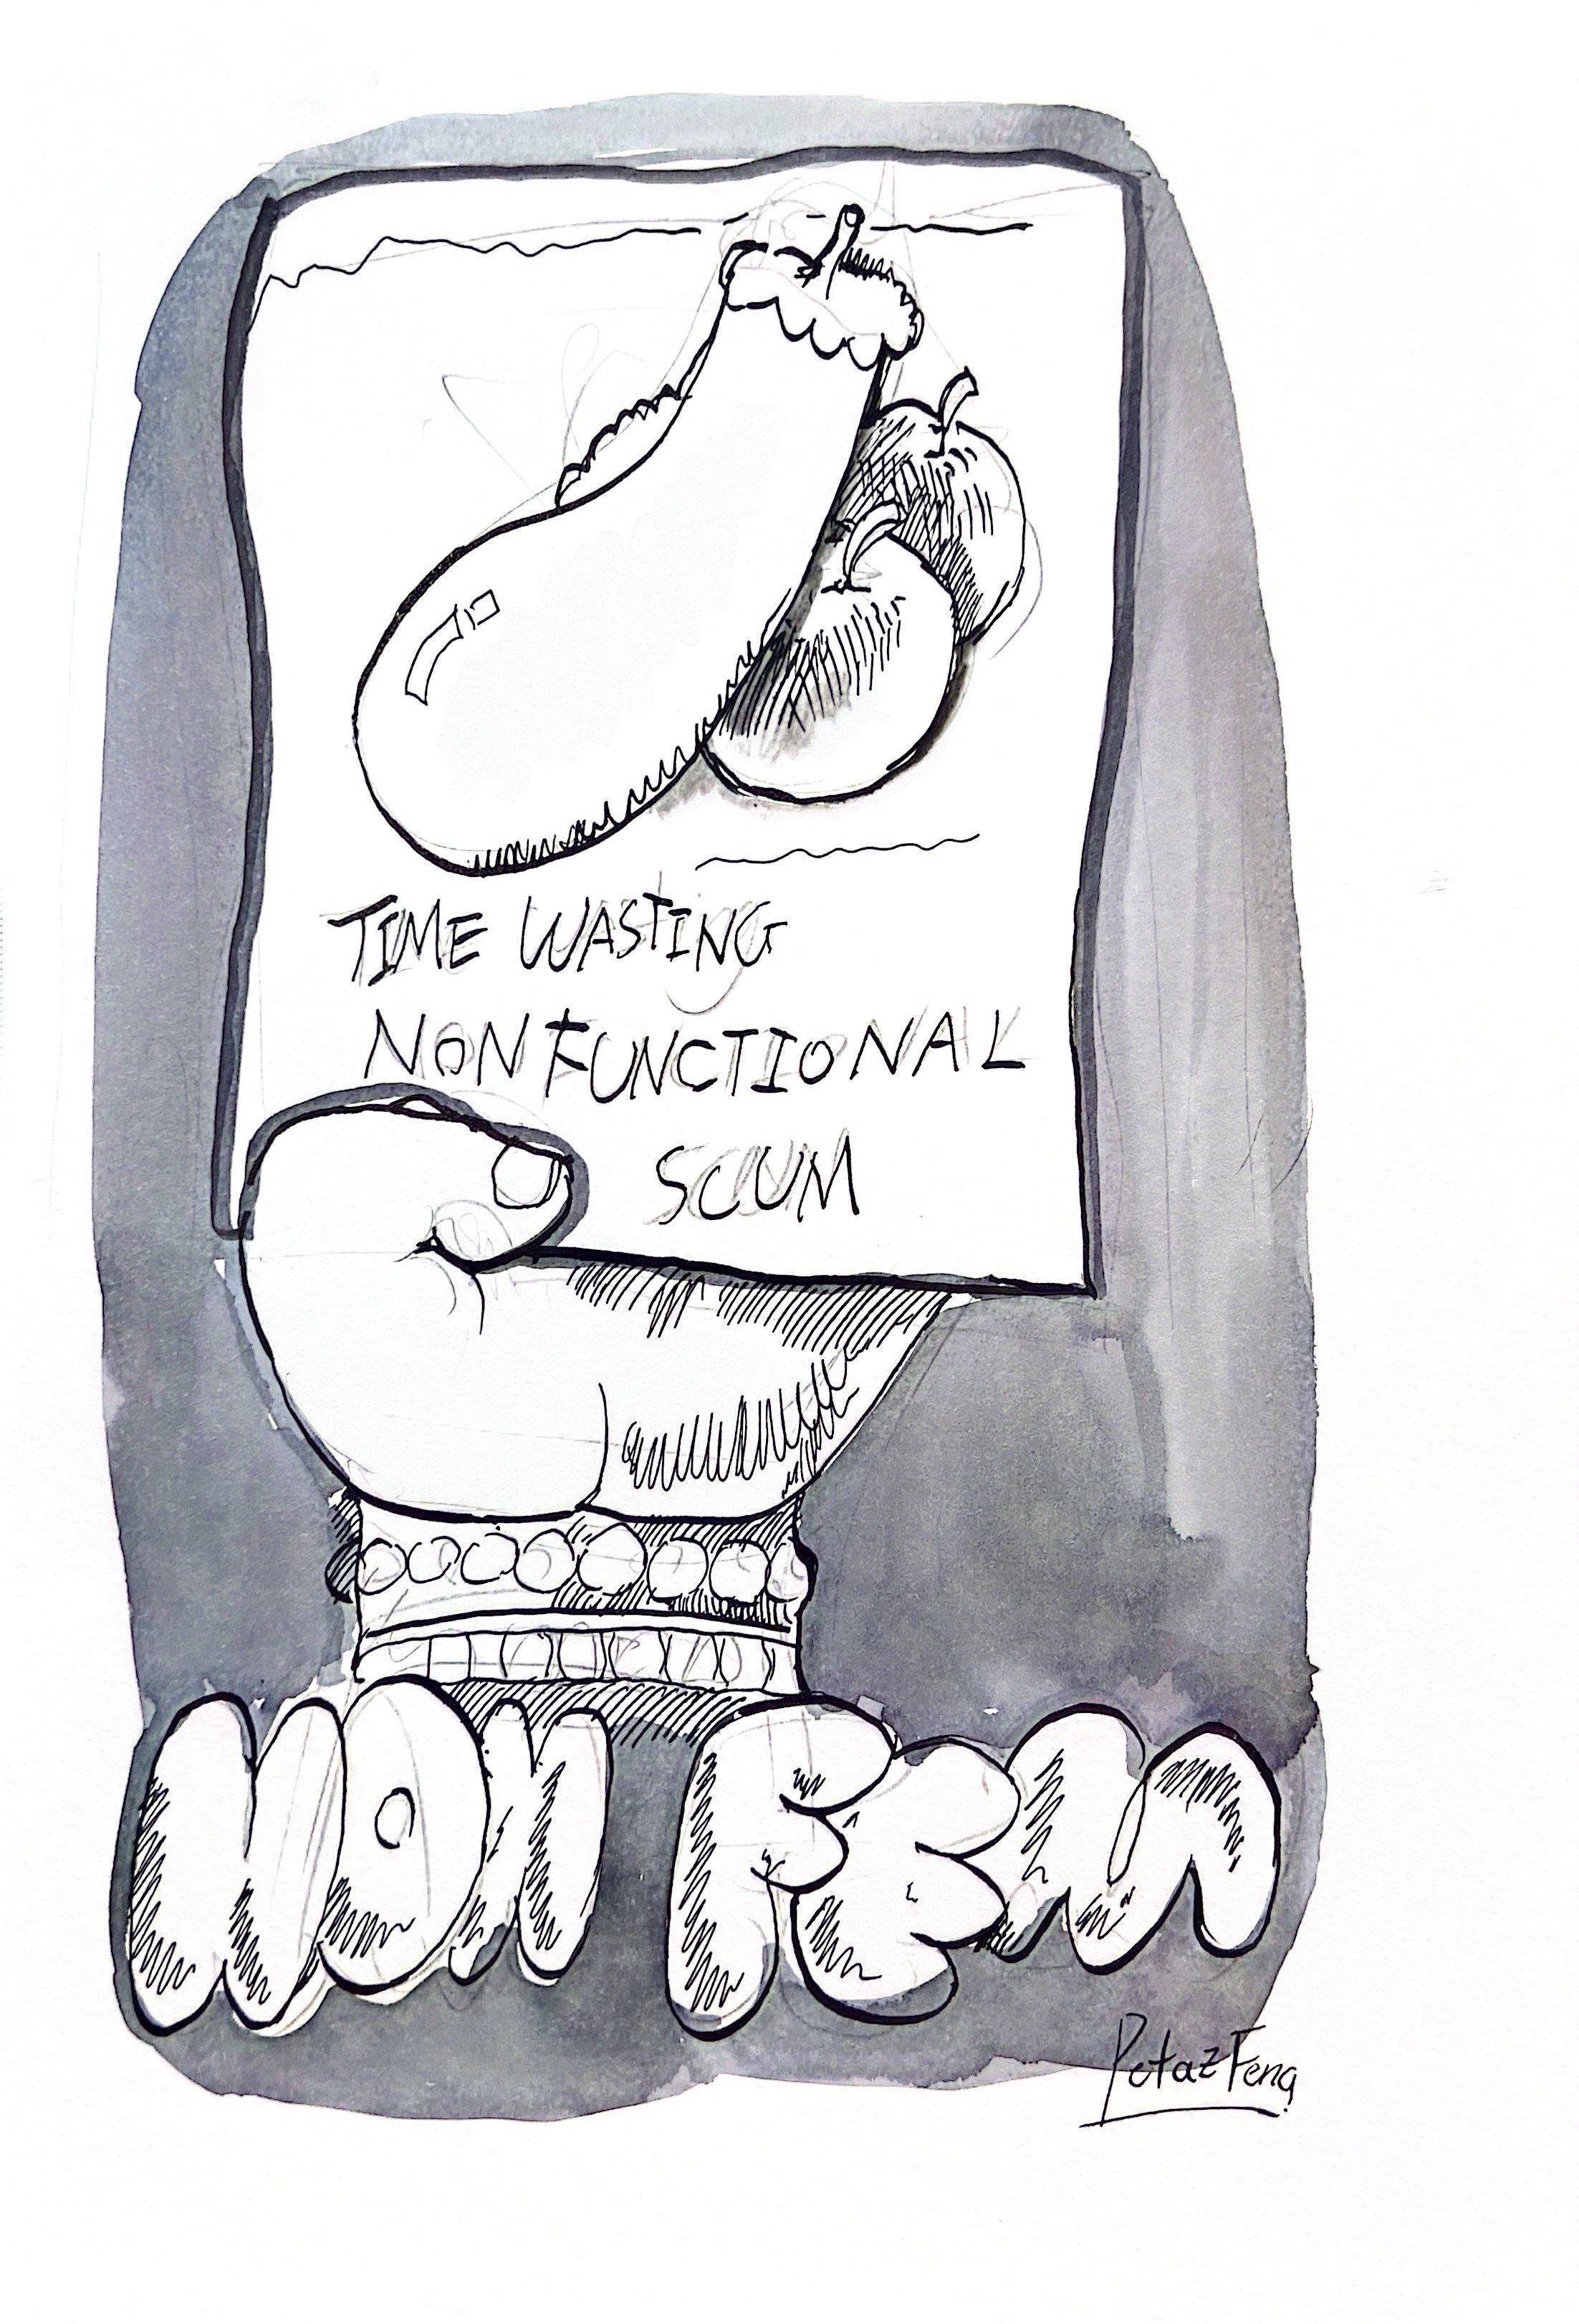 TIME WASTING
NONFUNCTIONAL
SCUM
WON FENG
Petaz Feng